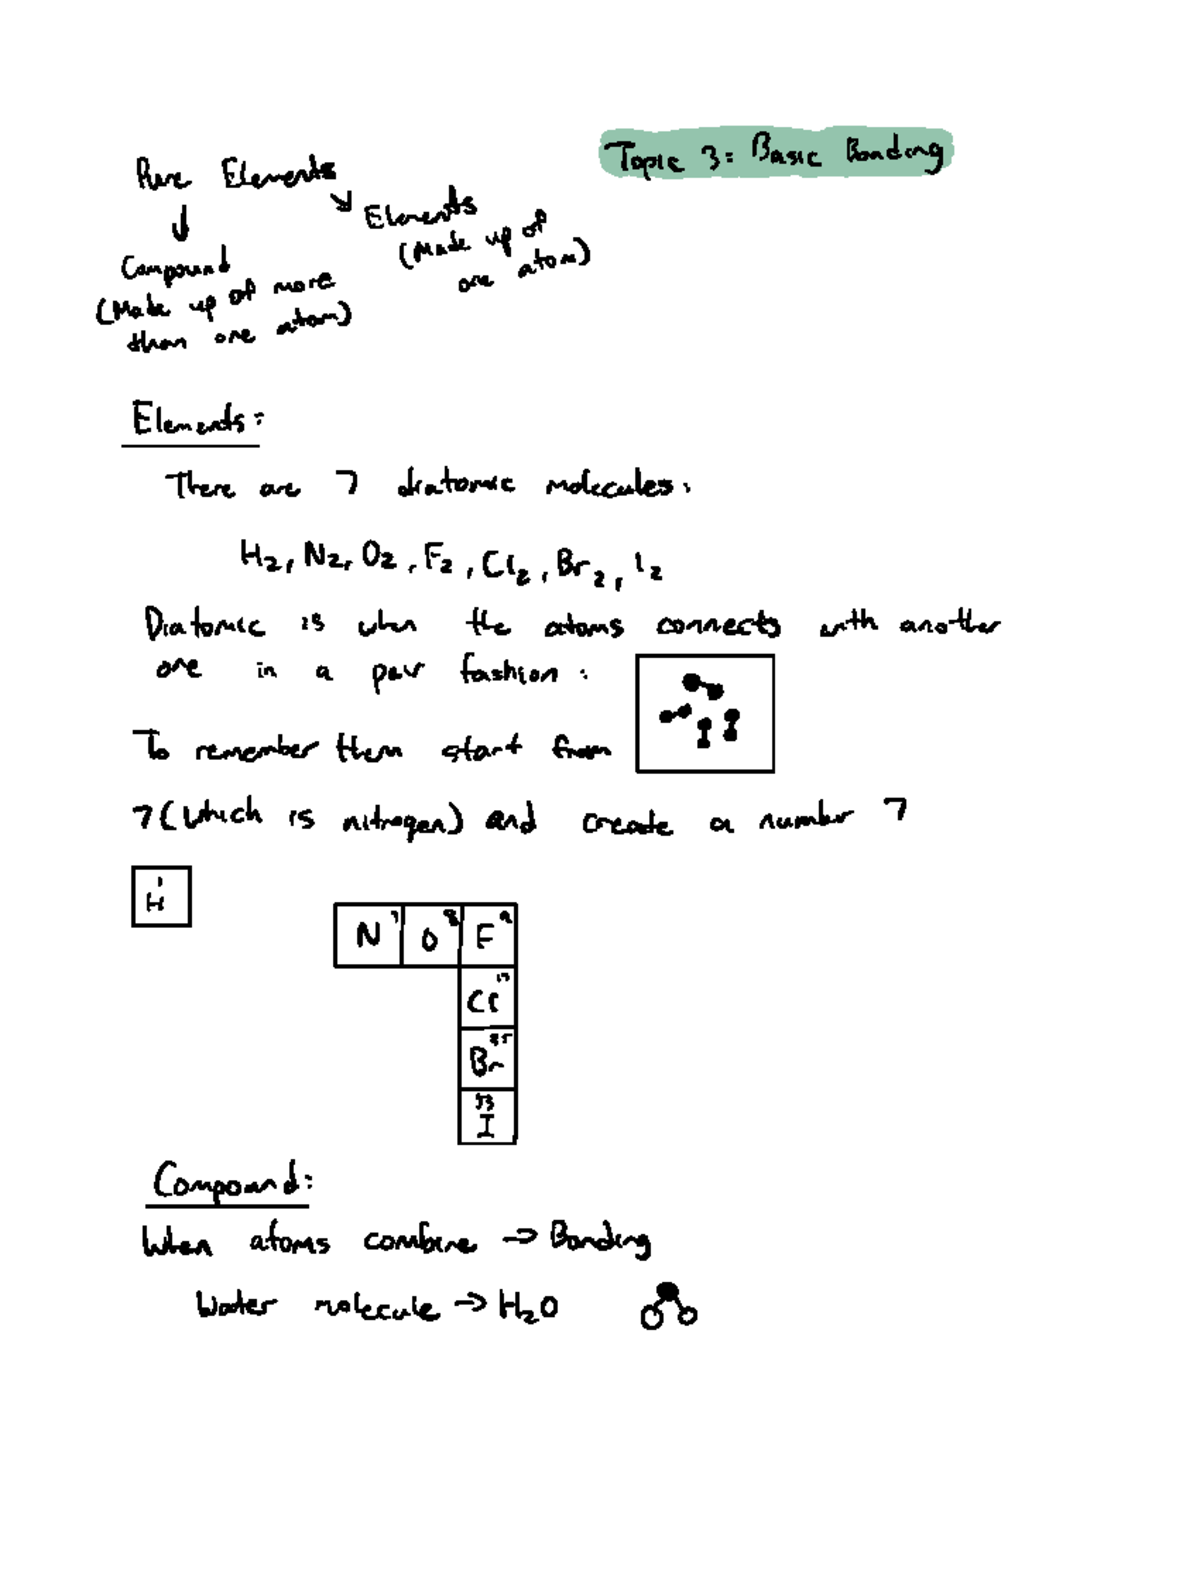 Topic 3: Basic Bonding
Pure Elements
Elements
(Made up of
one atom)
Compound
(Made up of more
than one atom)
Elements:
There are 7 diatomic molecules:
H2, N2, O2, F2, Cl2, Br2, I2
Diatomic is when the atoms connects with another
one in a pair fashion:
To remember them start from
7 (which is nitrogen) and create a number 7
1
H
N 7 O 8 F 9
Cl 17
Br 35
53
I
Compound:
When atoms combine → Bonding
Water molecule → H2O